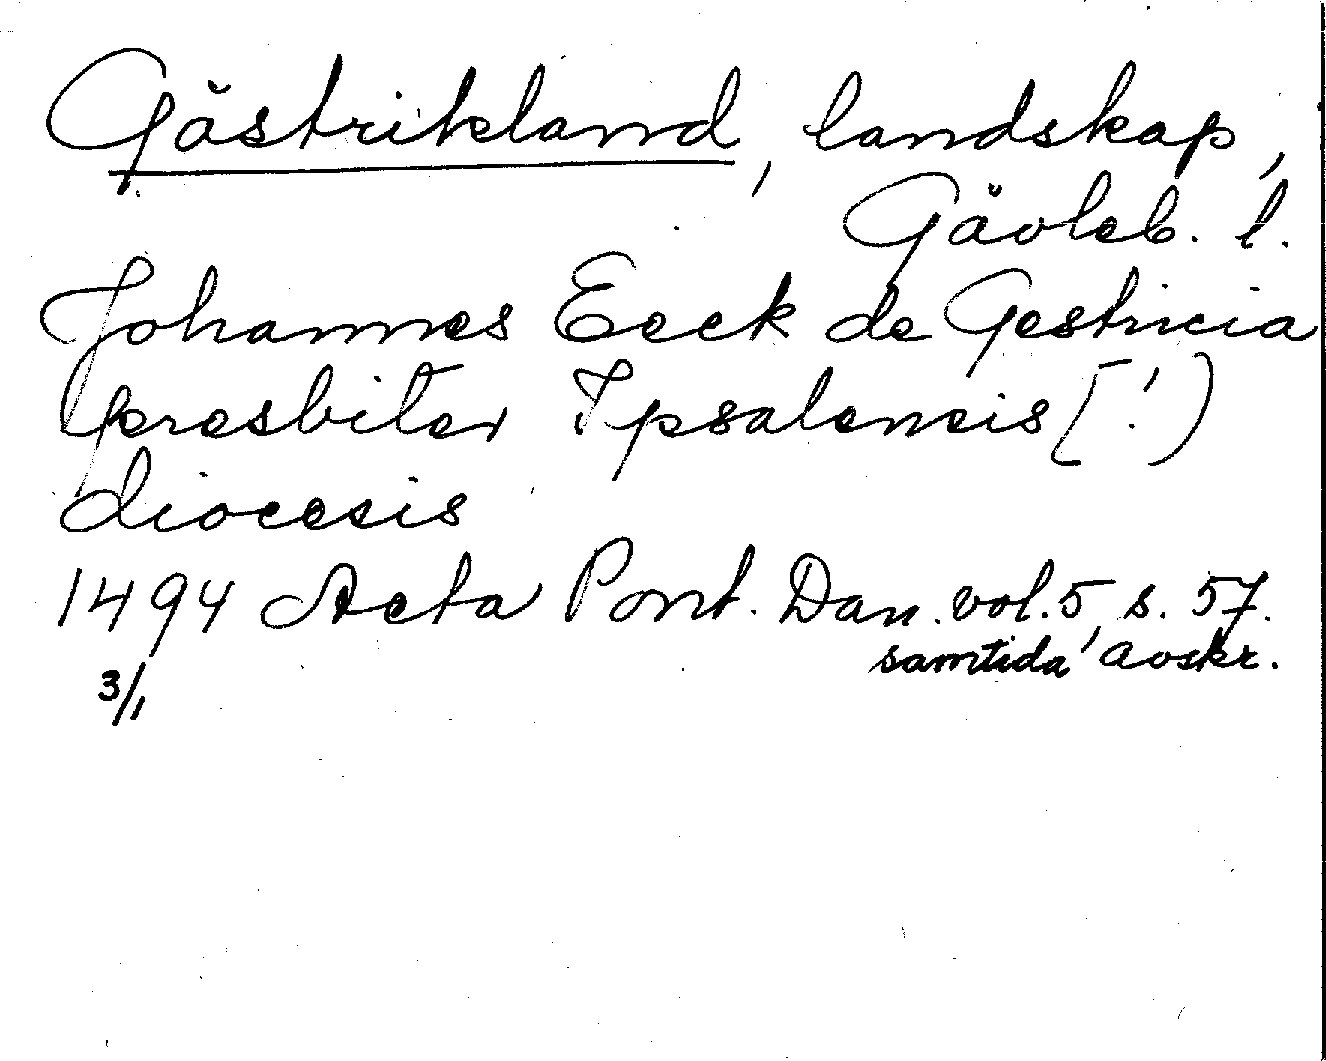 Gästrikland, landskap,
Gävleb. l.
Johannes Eeck de Gestricia
presbiter Ipsalencis [!)
diocesis
1494 Acta Pont. Dan. vol. 5, s. 57.
3/1 samtida avskr.